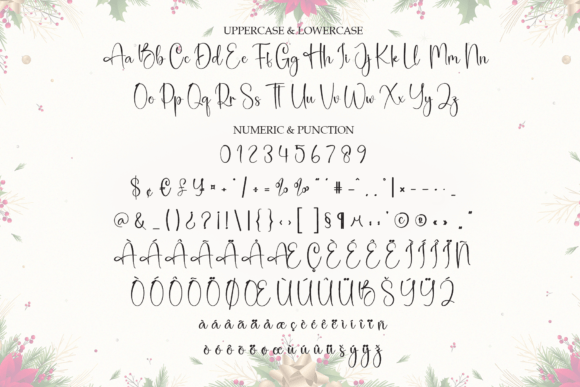 UPPERCASE & LOWERCASE
Aa Bb Cc Dd Ee Ff Gg Hh Ii Jj Kk Ll Mm Nn
Oo Pp Qq Rr Ss Tt Uu Vv Ww Xx Yy Zz
NUMERIC & PUNCTION
0 1 2 3 4 5 6 7 8 9
$ ¢ € £ ¥ ¤ + / ÷ = % ‰ # | ×
@ & _ ( ) ¿ ? ¡ ! \ | { } ‹ › [ ] § ¶ © ®
À Á Â Ã Ä Å Æ Ç È É Ê Ë Ì Í Î Ï Ñ
Ò Ó Ô Õ Ö Ø Œ Ù Ú Û Ü ß Š Ý Ÿ Ž
à á â ã ä å æ ç è é ê ë ì í î ï ñ
ò ó ô õ ö ø œ ù ú û ü š ý ÿ ž